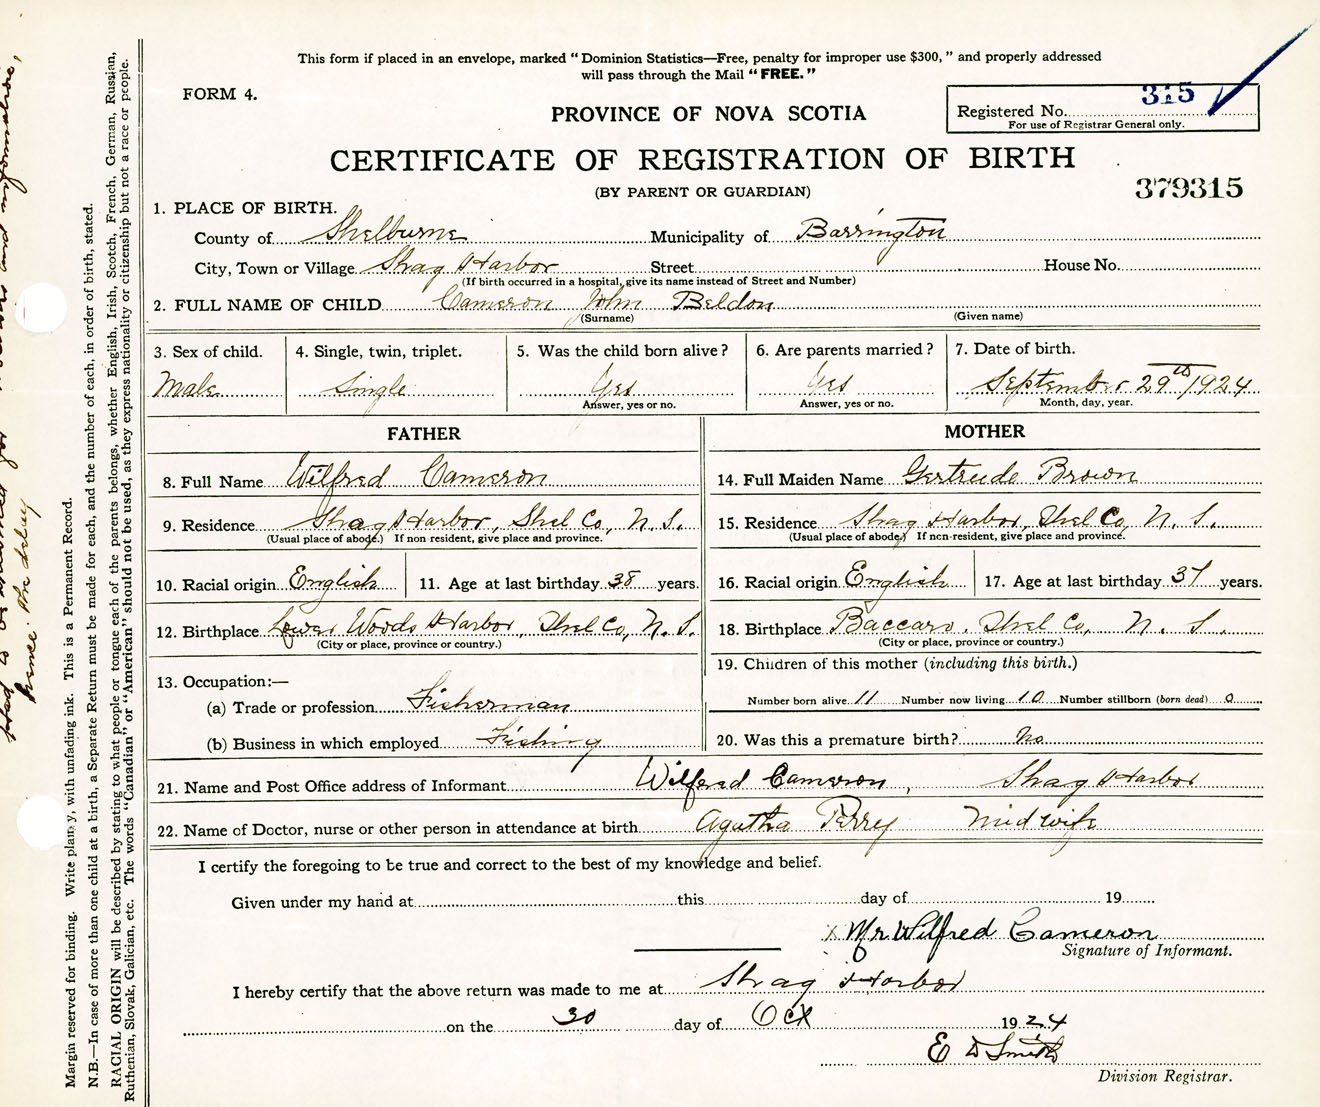 This form if placed in an envelope, marked "Dominion Statistics—Free, penalty for improper use $300," and properly addressed
will pass through the Mail "FREE."
FORM 4.
315
PROVINCE OF NOVA SCOTIA
Registered No.
For use of Registrar General only.
CERTIFICATE OF REGISTRATION OF BIRTH
(BY PARENT OR GUARDIAN)
379315
1. PLACE OF BIRTH.
County of Shelburne Municipality of Barrington
City, Town or Village Shag Harbor Street House No.
(If birth occurred in a hospital, give its name instead of Street and Number)
2. FULL NAME OF CHILD Cameron John Beldon
(Surname) (Given name)
3. Sex of child. 4. Single, twin, triplet. 5. Was the child born alive? 6. Are parents married? 7. Date of birth.
Male Single Yes Yes September 29th 1924
Answer, yes or no. Answer, yes or no. Month, day, year.
FATHER MOTHER
8. Full Name Wilfred Cameron 14. Full Maiden Name Gertrude Brown
9. Residence Shag Harbor, Shel Co, N. S. 15. Residence Shag Harbor, Shel Co, N. S.
(Usual place of abode.) If non-resident, give place and province. (Usual place of abode.) If non-resident, give place and province.
10. Racial origin English 11. Age at last birthday 38 years. 16. Racial origin English 17. Age at last birthday 37 years.
12. Birthplace Lower Woods Harbor, Shel Co, N. S. 18. Birthplace Baccaro, Shel Co, N. S.
(City or place, province or country.) (City or place, province or country.)
19. Children of this mother (including this birth.)
13. Occupation:—
(a) Trade or profession Fisherman Number born alive 11 Number now living 10 Number stillborn (born dead) 0
(b) Business in which employed Fishing 20. Was this a premature birth? No
21. Name and Post Office address of Informant Wilfred Cameron, Shag Harbor
22. Name of Doctor, nurse or other person in attendance at birth Agatha Perry Midwife
I certify the foregoing to be true and correct to the best of my knowledge and belief.
Given under my hand at this day of 19
x Mr Wilfred Cameron
Signature of Informant.
I hereby certify that the above return was made to me at Shag Harbor
on the 30 day of Oct 1924
E D Smith
Division Registrar.
Margin reserved for binding. Write plainly, with unfading ink. This is a Permanent Record.
N.B.—In case of more than one child at a birth, a Separate Return must be made for each, and the number of each, in order of birth, stated.
RACIAL ORIGIN will be described by stating to what people or tongue each of the parents belongs, whether English, Irish, Scotch, French, German, Russian,
Ruthenian, Slovak, Galician, etc. The words "Canadian" or "American" should not be used, as they express nationality or citizenship but not a race or people.
hence the delay